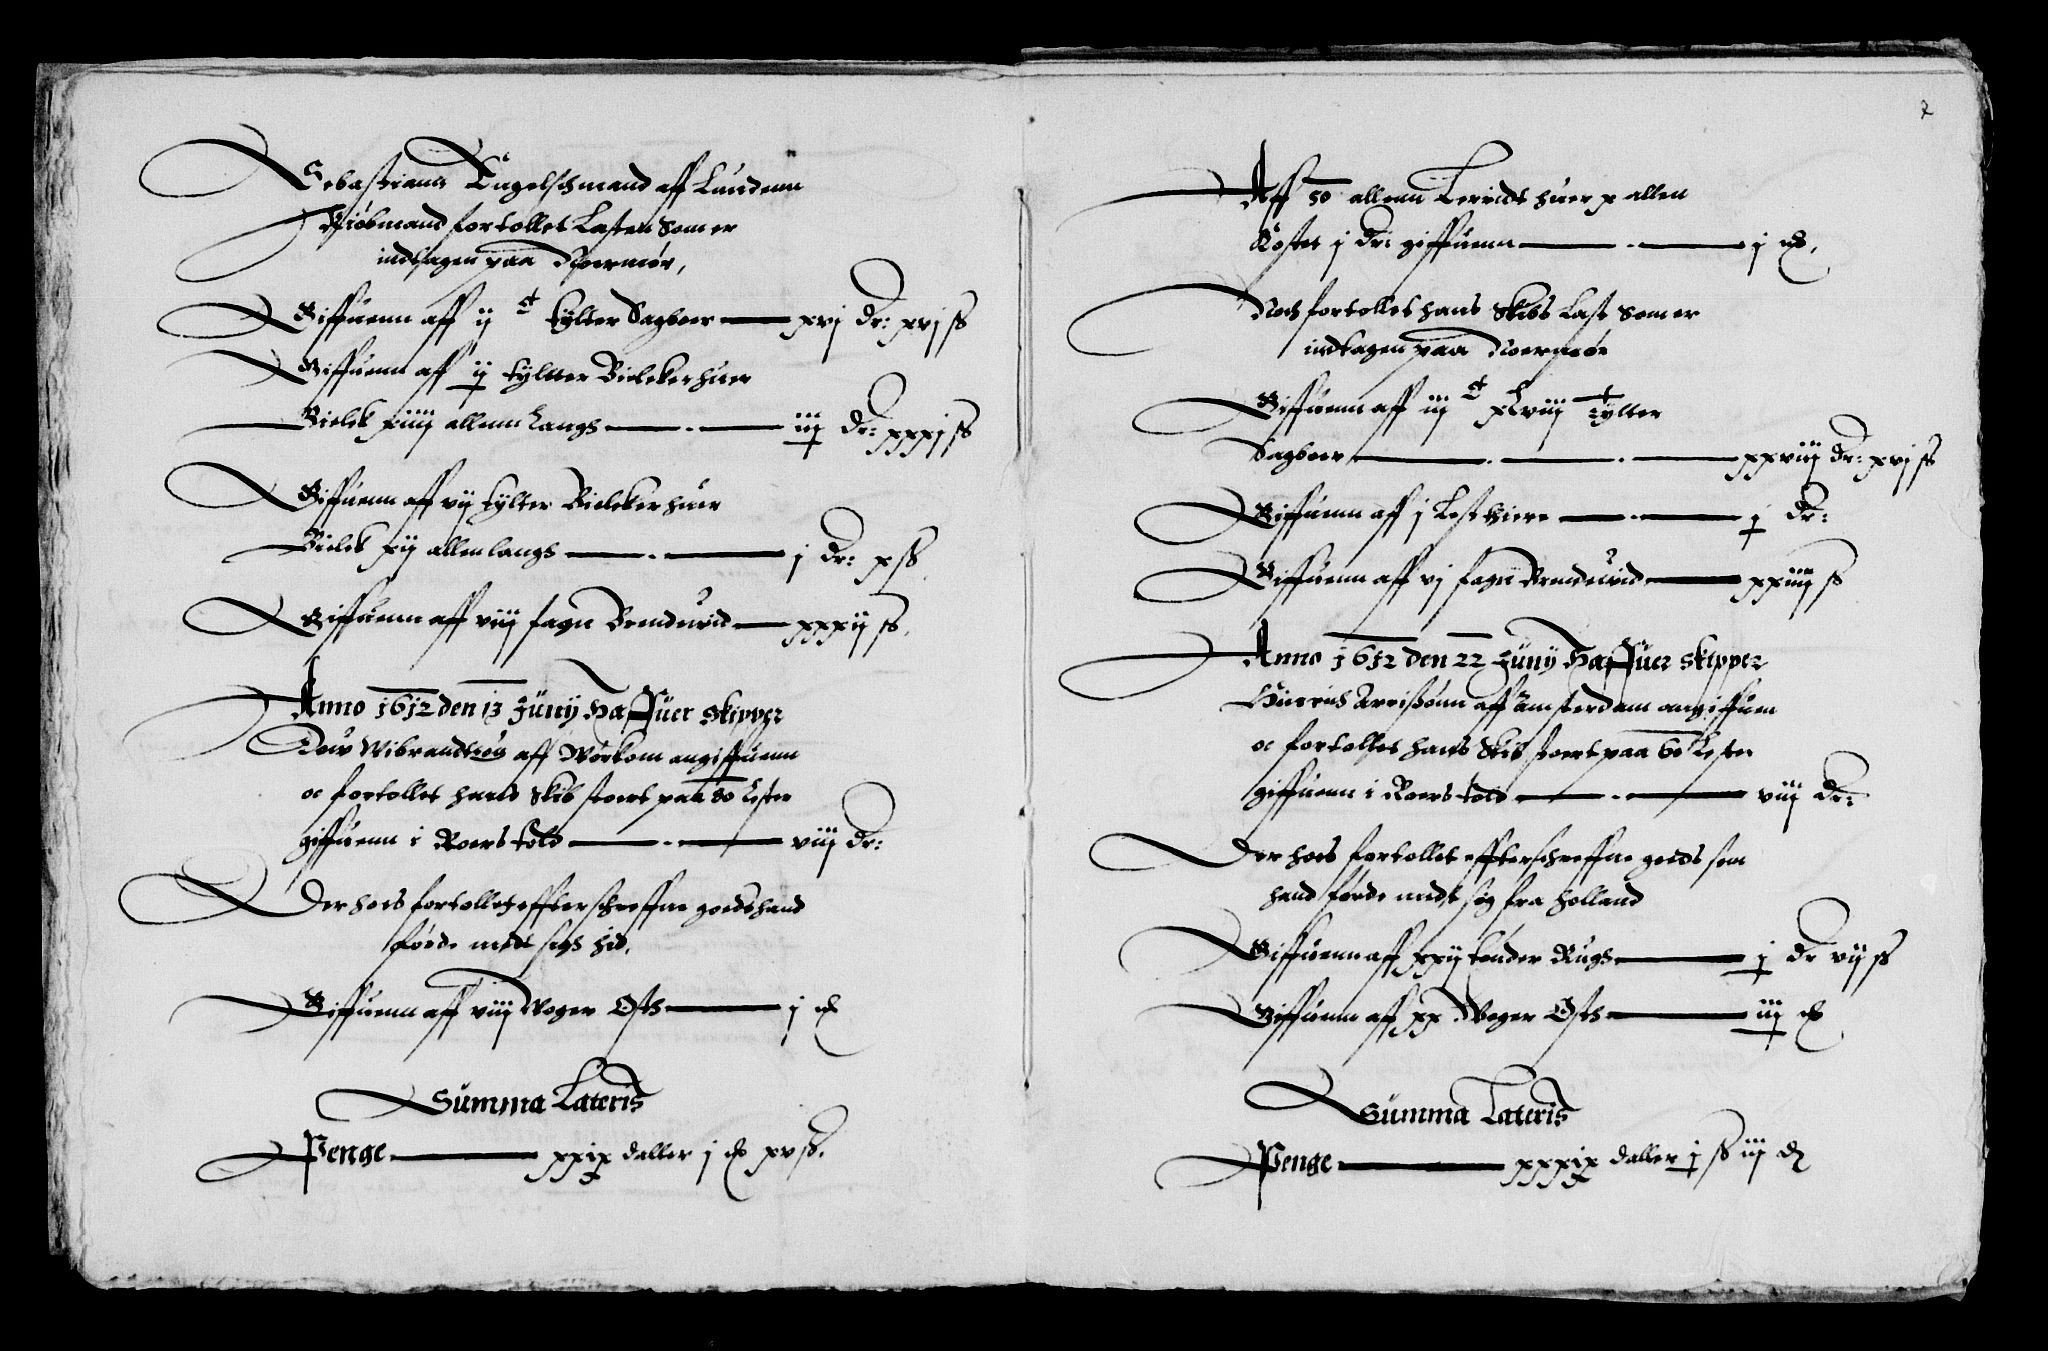 Sebastianus Engelschmand aff Lundenn
Kiøbmand fortollet Lasten Som er
indtagen paa Noermør,
Giffuenn aff ij c tylter Sagboer — xvj dr: xvj ß
Giffuenn aff ij tyltter Bielcker huer
Bielck xiiij allenn Langs — iij dr: xxxj ß
Giffuenn aff vij tylter Bielcker huer
Bielck xij allen langs — j dr: x ß
Giffuenn aff viij fagn Brendeuid — xxxij ß.
Anno 1612 den 13 Juny Haffuer Skipper
Douw Wibrandtzøn aff Workom angiffuenn
oc fortollet hans Skib stoert paa 80 Lester
giffuenn i Roers told — viij dr:
Der hoes fortollet effterschreffne goeds hand
førde medt sigh hid,
Giffuenn aff viij Woger Osth — j
Summa Lateris
Penge — xxix daller j xv ß.
2
Aff 50 allenn Leruidt huer allen
Kostet j dr: giffuenn — j
Noch fortollet hans Skibs Last Som er
indtagen paa Noermør
Giffuenn aff iij c xlviij tylter
Sagboer — xxviij dr: xvj ß
Giffuenn aff j Lest thiere — j dr:
Giffuenn aff vj fagn Brendeuid — xxiiij ß
Anno 1612 den 22 Juny Haffuer Skipper
Hinrich Arrißønn aff Amsterdam angiffuen
oc fortollet hans Skib stoert paa 60 Lester
giffuenn i Roers told — viij dr:
Der hoes fortollet effterschreffne goeds som
hand førde medt sig fra Holland
Giffuenn aff xxij tønder Rugh — j dr vij ß
Giffuenn aff xx Woger Osth — iij
Summa Lateris
Penge — xxxix daller j ß iij